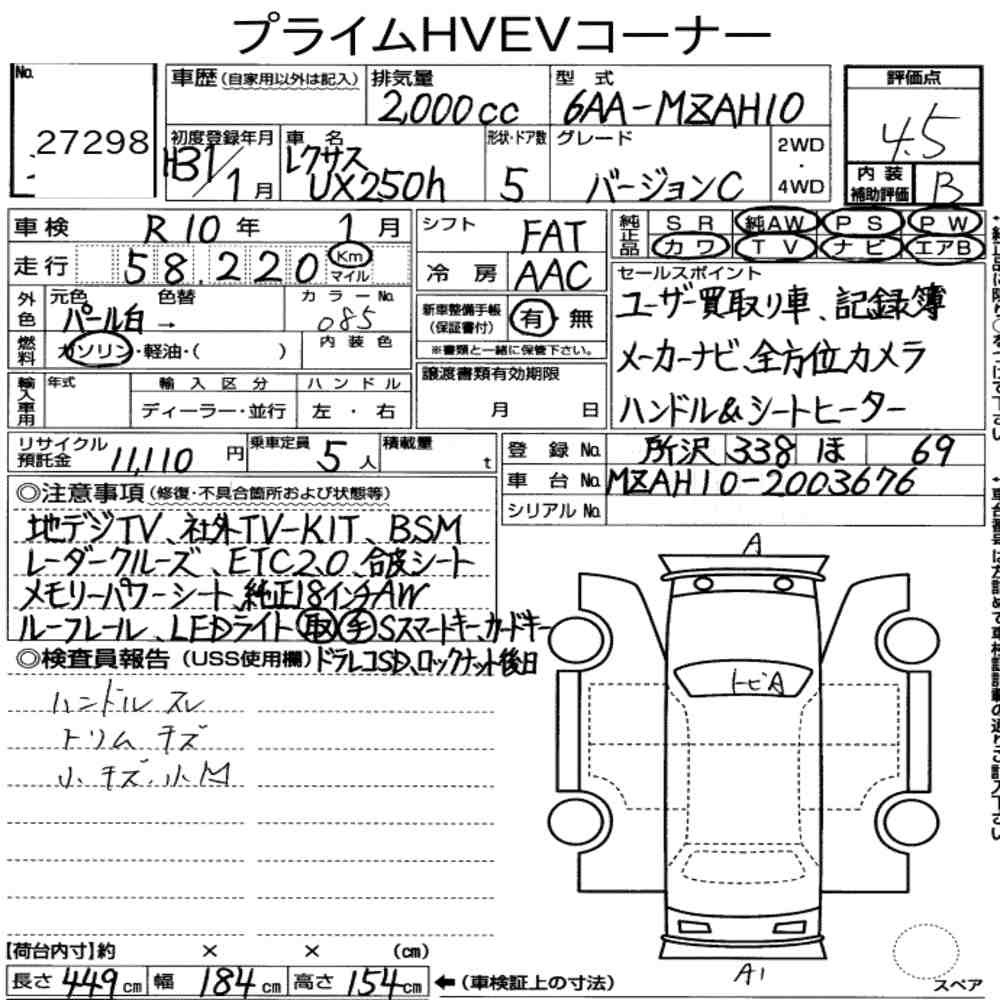 プライムHVEVコーナー
No. 27298
車歴(自家用以外は記入) 排気量 2,000cc 型式 6AA-MZAH10
評価点 4.5
初度登録年月 H31/1月 車名 レクサス UX250h 形状・ドア数 5 グレード バージョンC 2WD・4WD
内装補助評価 B
車検 R10年 1月 シフト FAT
純正品 SR 純AW PS PW
カワ TV ナビ エアB
走行 58,220 Km マイル 冷房 AAC
セールスポイント
ユーザー買取り車、記録簿
メーカーナビ、全方位カメラ
ハンドル&シートヒーター
外色 元色 パール白 → 色替 カラーNo. 085
新車整備手帳(保証書付) 有・無
※書類と一緒に保管下さい。
燃料 ガソリン・軽油・( ) 内装色
譲渡書類有効期限 月 日
輸入車用 年式 輸入区分 ハンドル
ディーラー・並行 左・右
リサイクル預託金 11,110円 乗車定員 5人 積載量 t
登録No. 所沢 338 ほ 69
車台No. MZAH10-2003676
シリアルNo.
◎注意事項(修復・不具合箇所および状態等)
地デジTV、社外TV-KIT、BSM
レーダークルーズ、ETC2.0、合皮シート
メモリーパワーシート、純正18インチAW
ルーフレール、LEDライト 取 手 Sスマートキー、カードキー
◎検査員報告(USS使用欄) ドラレコSD、ロックナット後日
ハンドルスレ
トリムキズ
小キズ・小凹
A
トビA
A1
スペア
【荷台内寸】約 × × (cm)
長さ 449cm 幅 184cm 高さ 154cm ←(車検証上の寸法)